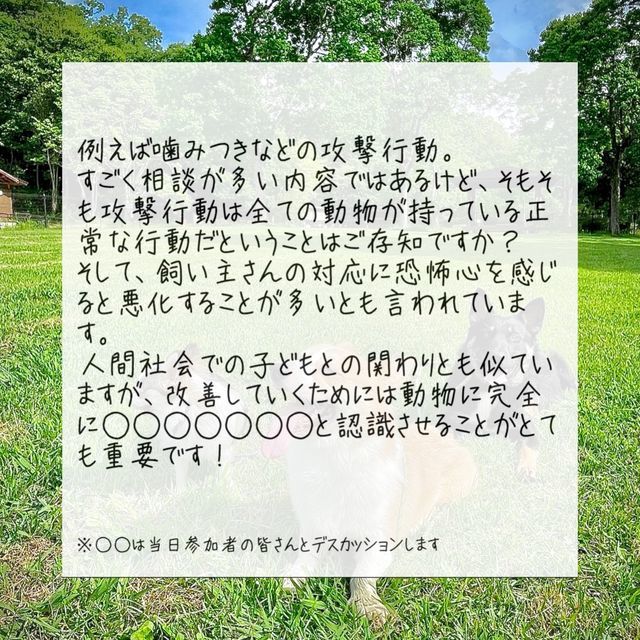 例えば噛みつきなどの攻撃行動。
すごく相談が多い内容ではあるけど、そもそ
も攻撃行動は全ての動物が持っている正
常な行動だということはご存知ですか？
そして、飼い主さんの対応に恐怖心を感じ
ると悪化することが多いとも言われていま
す。
人間社会での子どもとの関わりとも似てい
ますが、改善していくためには動物に完全
に〇〇〇〇〇〇〇と認識させることがとて
も重要です！
※〇〇は当日参加者の皆さんとデスカッションします